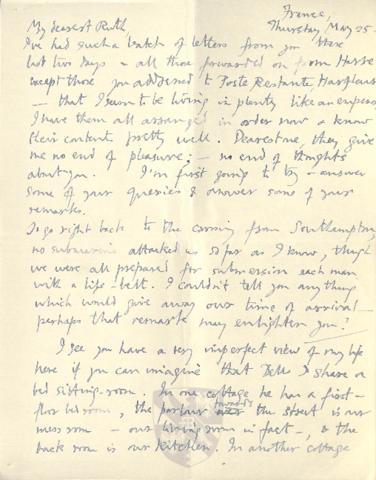 France,
Thursday, May 25
My dearest Ruth
I've had such a batch of letters from you these
last two days – all those forwarded on from Havre
except those you addressed to Poste Restante, Harfleur
– that I seem to be living in plenty like an empress
I have them all arranged in order now & know
their content pretty well. Dearest one, they give
me no end of pleasure; – no end of thoughts
about you. I'm first going to try – answer
some of your queries & answer some of your
remarks.
To go right back to the crossing from Southampton,
no submarine attacked us so far as I know, though
we were all prepared for submersion each man
with a life-belt. I couldn't tell you anything
which would give away our time of arrival –
perhaps that remark may enlighten you?
I see you have a very imperfect view of my life
here if you can imagine that Bell & I share a
bed sitting-room. In one cottage he has a first-
floor bedroom, the parlour towards the street is our
mess room – our living room in fact –, & the
back room is our kitchen. In another cottage